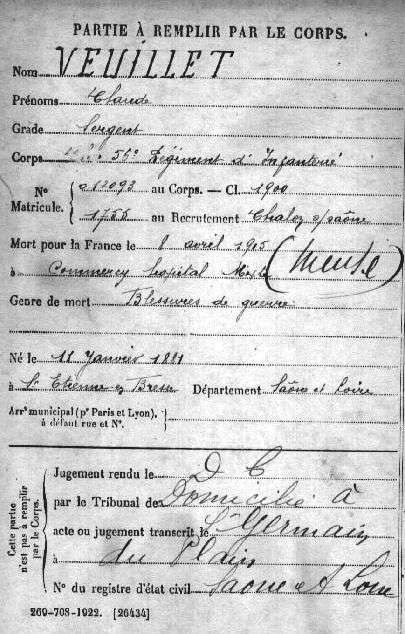 PARTIE À REMPLIR PAR LE CORPS.
Nom VEUILLET
Prénoms Claude
Grade Sergent
Corps 56e Régiment d'Infanterie
No Matricule. 012093 au Corps. — Cl. 1900
1755 au Recrutement Chalon s/saône
Mort pour la France le 8 avril 1915
à Commercy hospital (Meuse)
Genre de mort Blessures de guerre
Né le 11 Janvier 1881
à St Etienne en Bresse Département Saône et Loire
Arrt municipal (pr Paris et Lyon),
à défaut rue et No.
Cette partie n'est pas à remplir par le Corps.
Jugement rendu le D C
par le Tribunal de Domicilié à
acte ou jugement transcrit le St Germain
à du Plain
No du registre d'état civil Saone et Loire
269-708-1922. [26434]